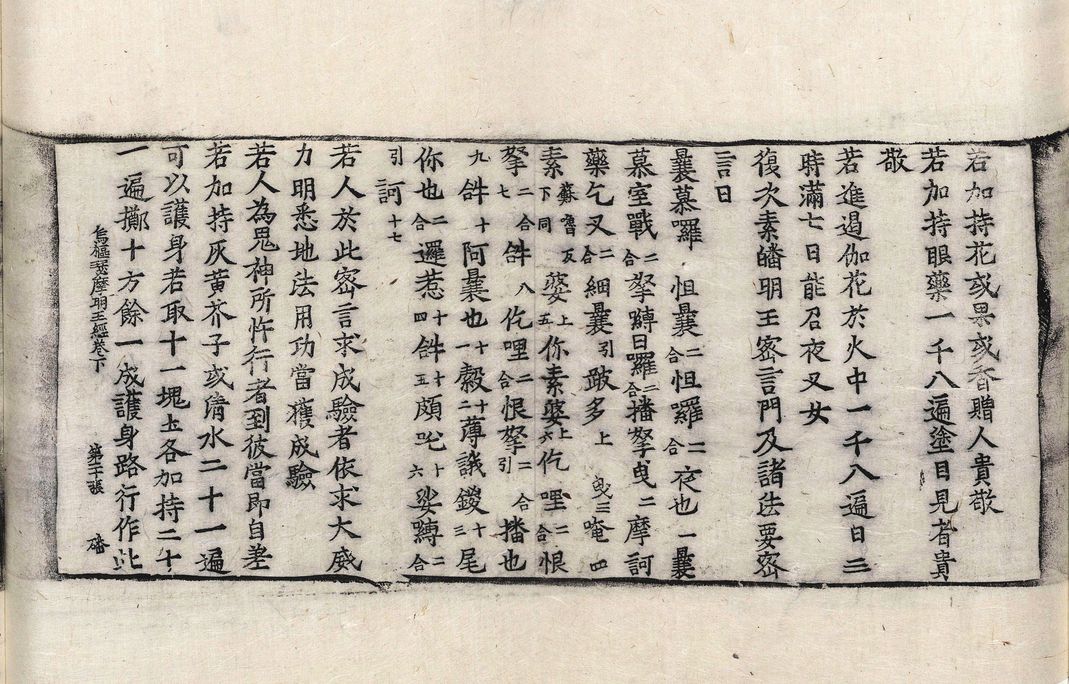 若加持花或果或香贈人貴敬
若加持眼藥一千八遍塗目見者貴
敬
若進遏伽花於火中一千八遍日三
時滿七日能召夜叉女
復次素皤明王密言門及諸法要密
言曰
曩慕囉怛曩二合怛羅二合夜也一曩
慕室戰二合拏嚩日囉二合播拏曳二摩訶
藥乞叉二合細曩引跛多上曳三唵四
素蘇嚕反下同婆上你素婆上六仡哩二合恨
拏二合七𤙖八仡哩二合恨拏二合引播也
九𤙖十阿曩也十一縠十二薄誐鑁十三尾
你也二合邏惹十四𤙖十五頗吒十六娑嚩二合
引訶十七
若人於此密言求成驗者依求大威
力明悉地法用功當獲成驗
若人為鬼神所忤行者到彼當即自差
若加持灰黃芥子或清水二十一遍
可以護身若取十一塊土各加持二十
一遍擲十方餘一成護身路行作此
烏樞瑟摩明王經卷下 第二十張